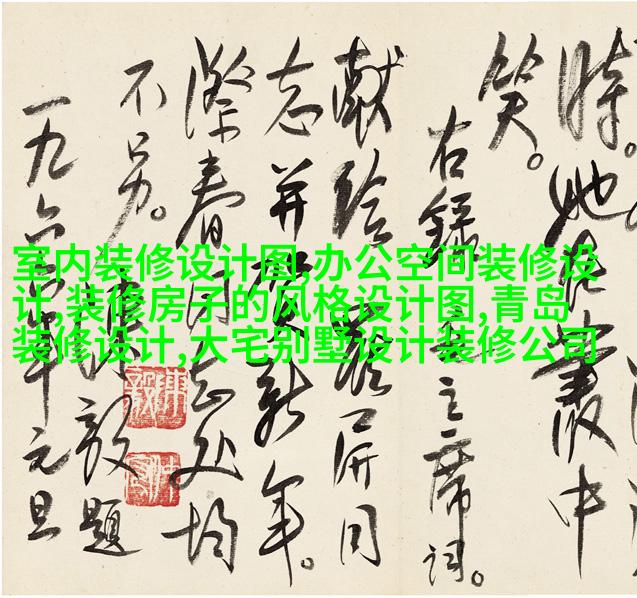 室内装修设计图,办公空间装修设
计,装修房子的风格设计图,青岛
装修设计,大宅别墅设计装修公司
時。她在叢中
笑。
右錄主席词。
献给严屏同
志并贺新年。
際春同志处均
不另。
陳毅題
一九六六年元旦
陳毅